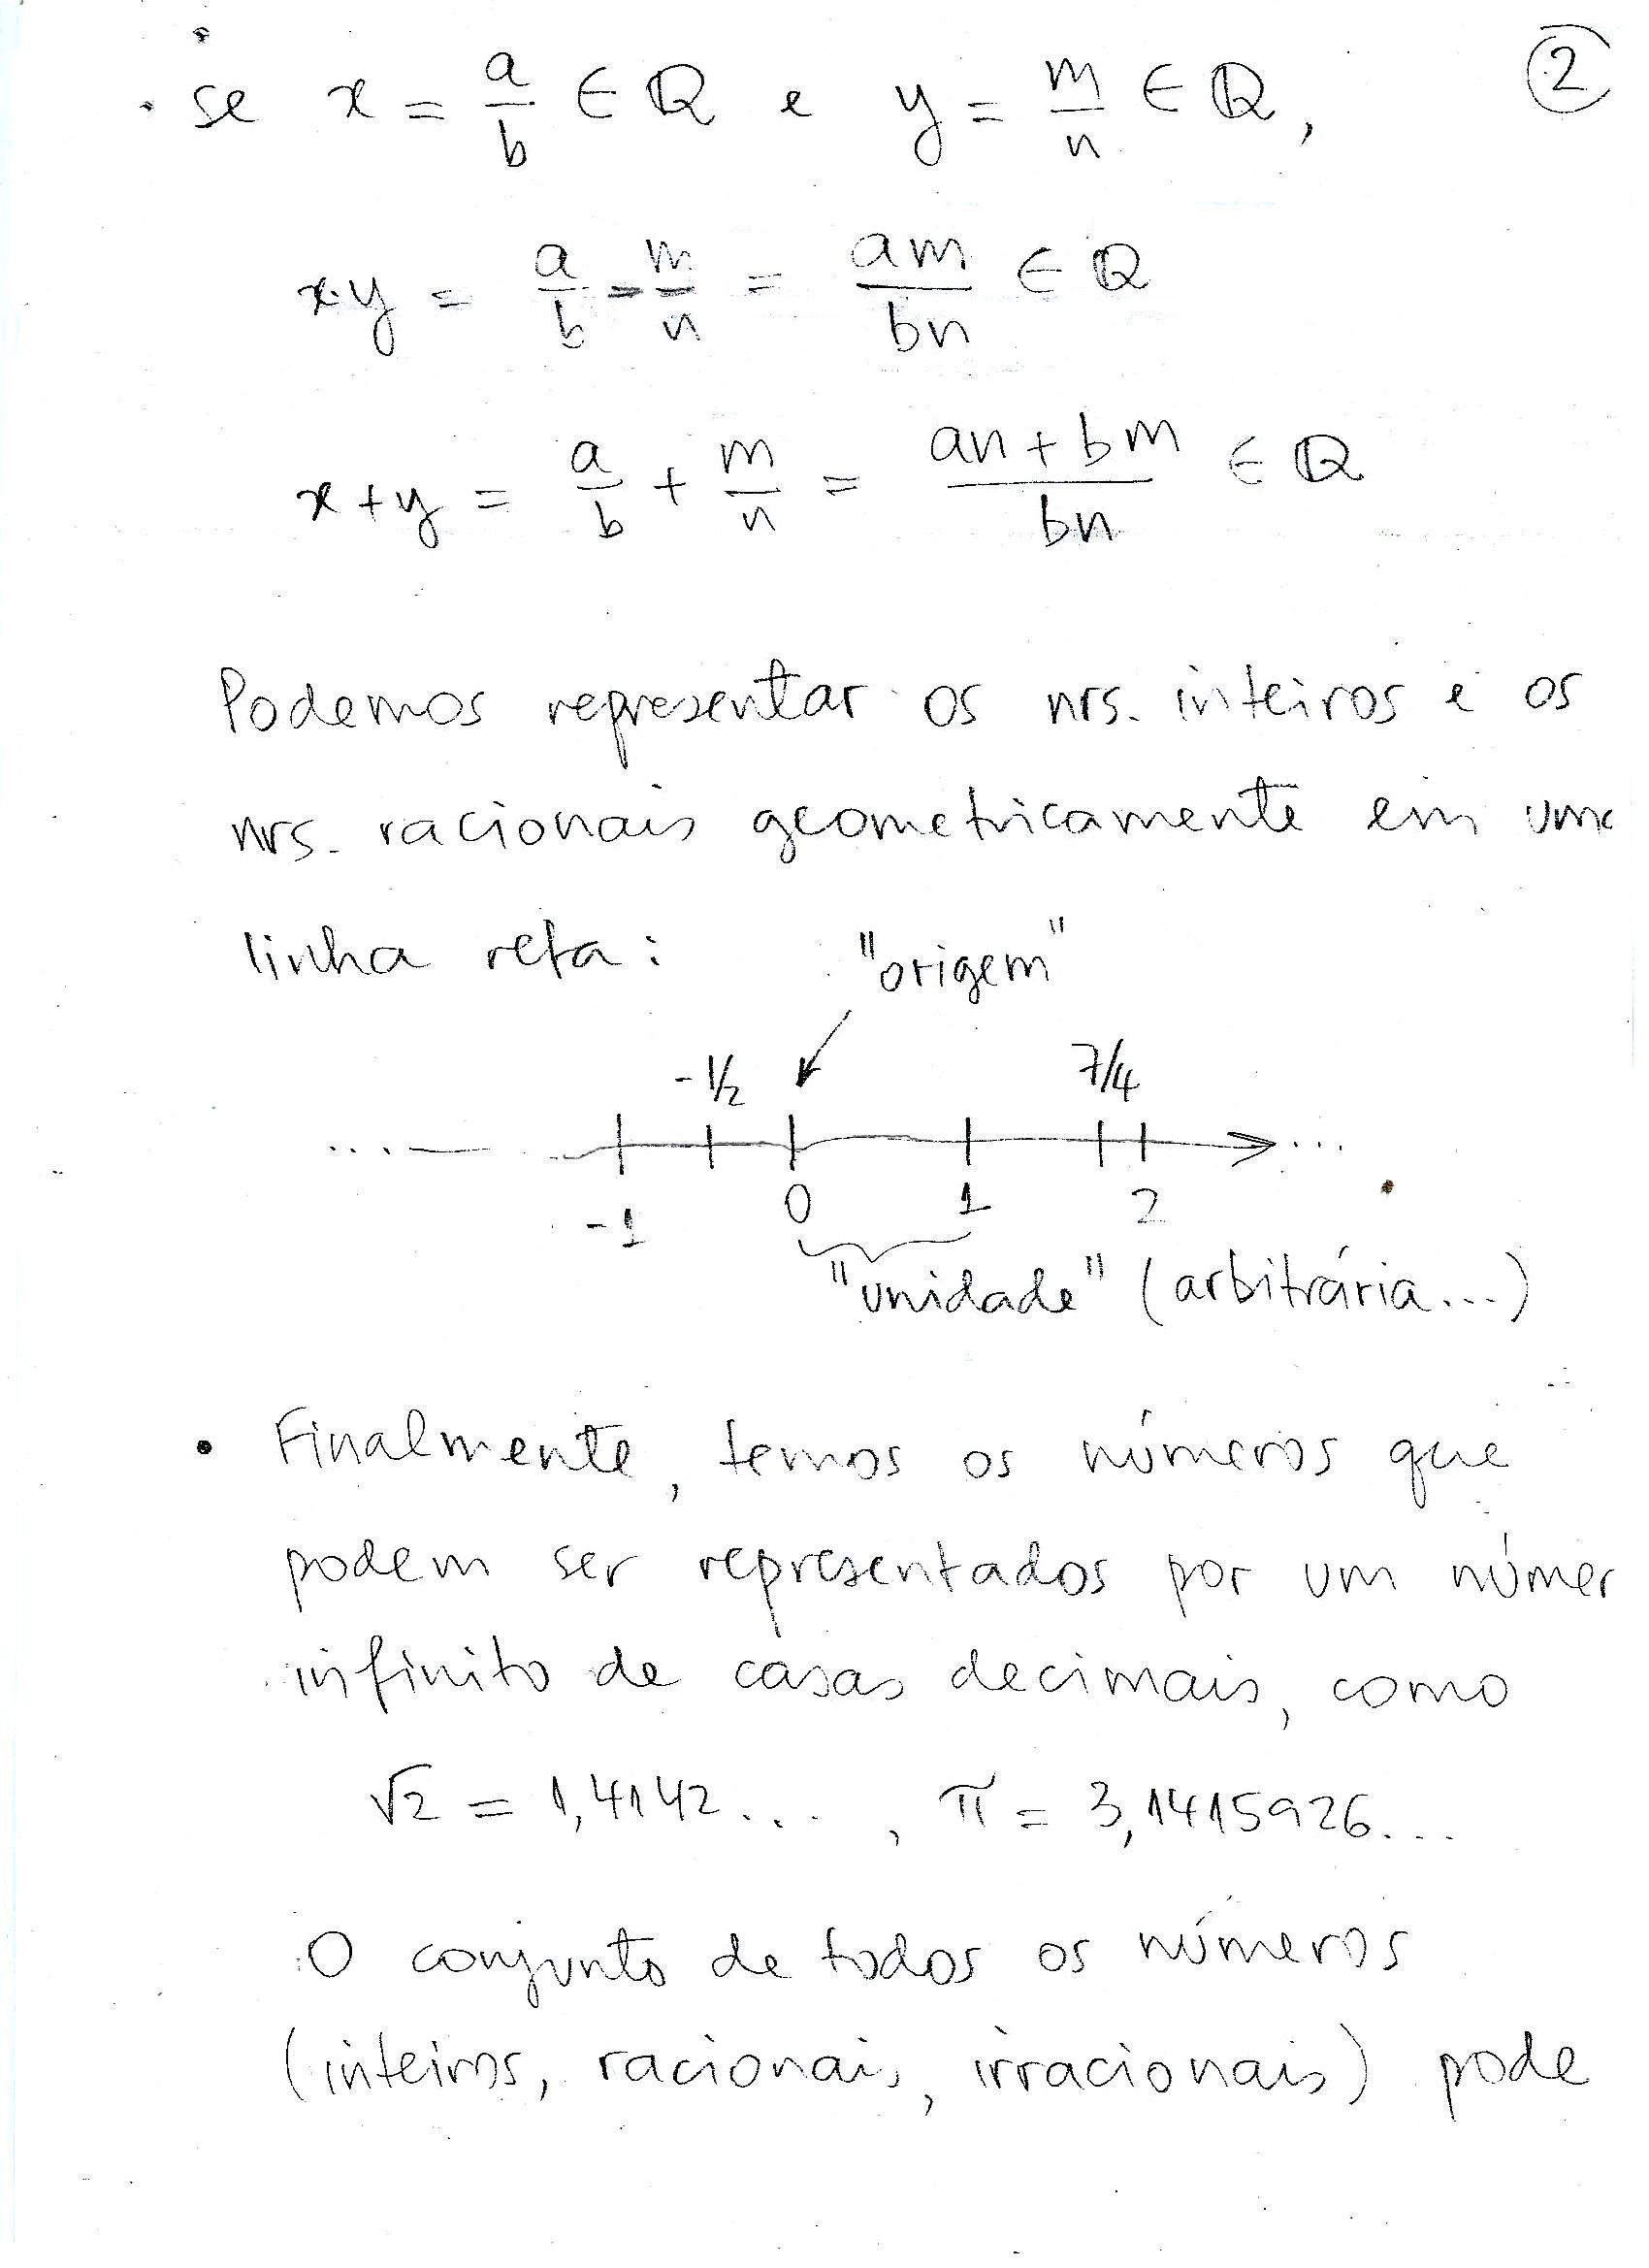 ②
· se x = a/b ∈ ℚ e y = m/n ∈ ℚ,
x·y = a/b · m/n = am/bn ∈ ℚ
x+y = a/b + m/n = (an+bm)/bn ∈ ℚ
Podemos representar os nrs. inteiros e os
nrs. racionais geometricamente em uma
linha reta: "origem"
-1/2 7/4
... ...
-1 0 1 2
"unidade" (arbitrária...)
• Finalmente, temos os números que
podem ser representados por um númer
infinito de casas decimais, como
√2 = 1,4142... , π = 3,1415926...
O conjunto de todos os números
(inteiros, racionais, irracionais) pode